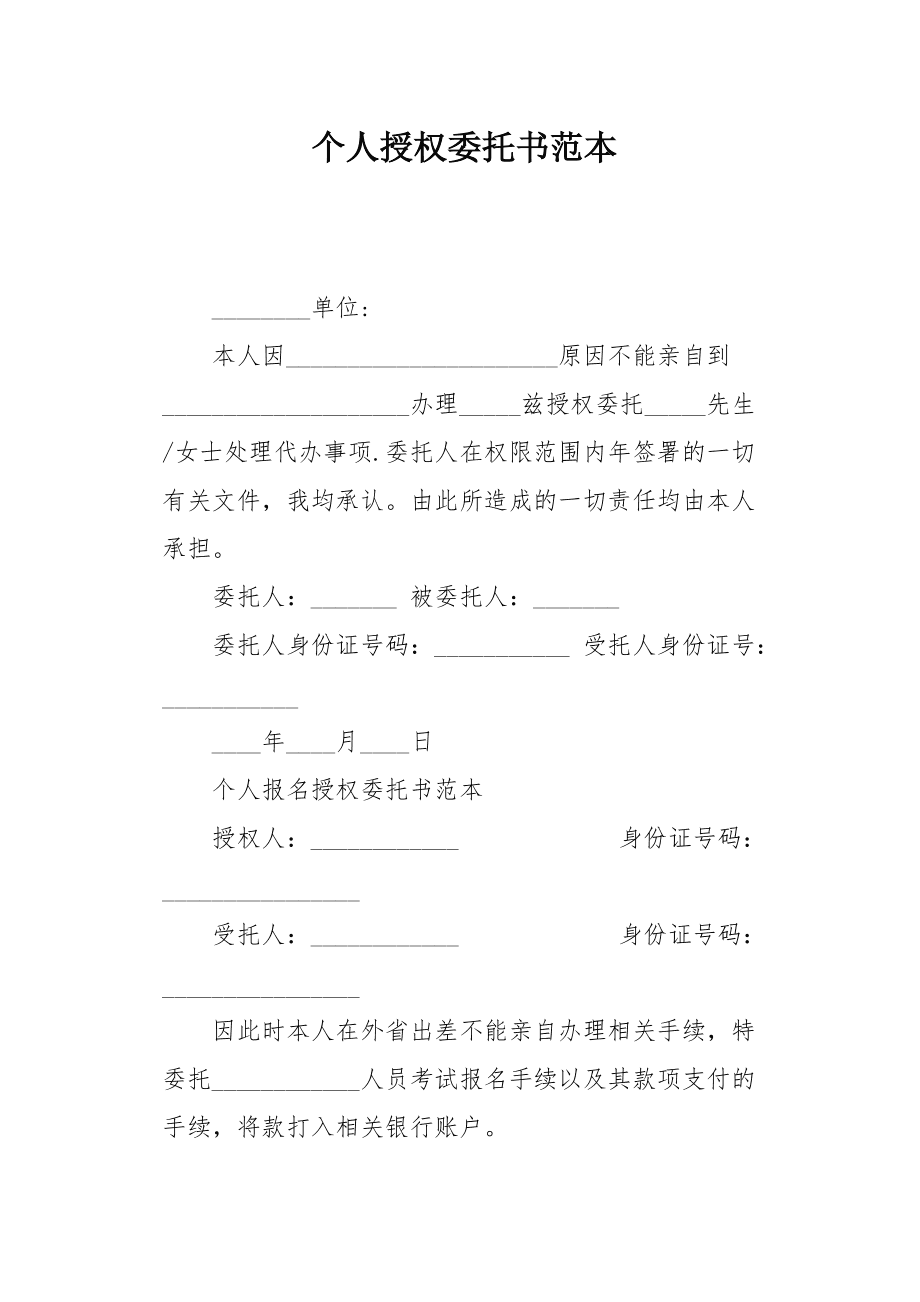 个人授权委托书范本
________单位:
本人因______________________原因不能亲自到
____________________办理_____兹授权委托_____先生
/女士处理代办事项.委托人在权限范围内年签署的一切
有关文件，我均承认。由此所造成的一切责任均由本人
承担。
委托人：_______ 被委托人：_______
委托人身份证号码：___________ 受托人身份证号：
___________
____年____月____日
个人报名授权委托书范本
授权人：____________ 身份证号码：
________________
受托人：____________ 身份证号码：
________________
因此时本人在外省出差不能亲自办理相关手续，特
委托____________人员考试报名手续以及其款项支付的
手续，将款打入相关银行账户。